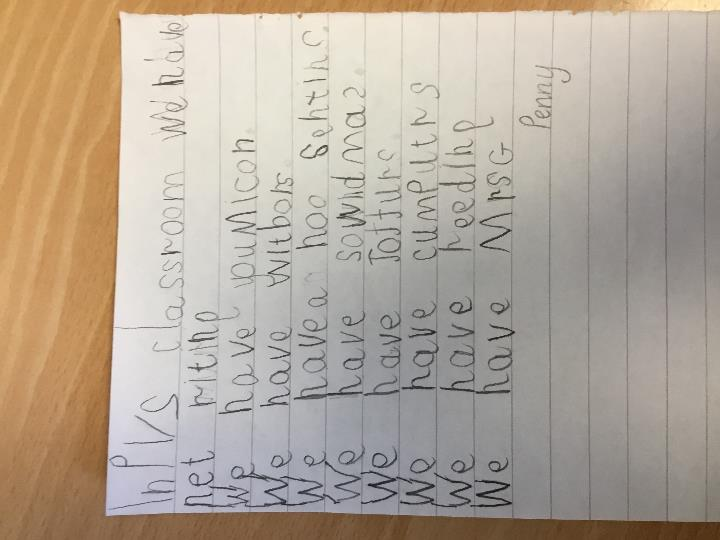 In P1/S classroom We have
net ritinp
We have puMicon.
We have Wltbors.
We have a hoo Sehtins.
We have sowidmas.
We have Jotturs.
We have cumPutrs
We have reedinp
We have MrsG
Penny